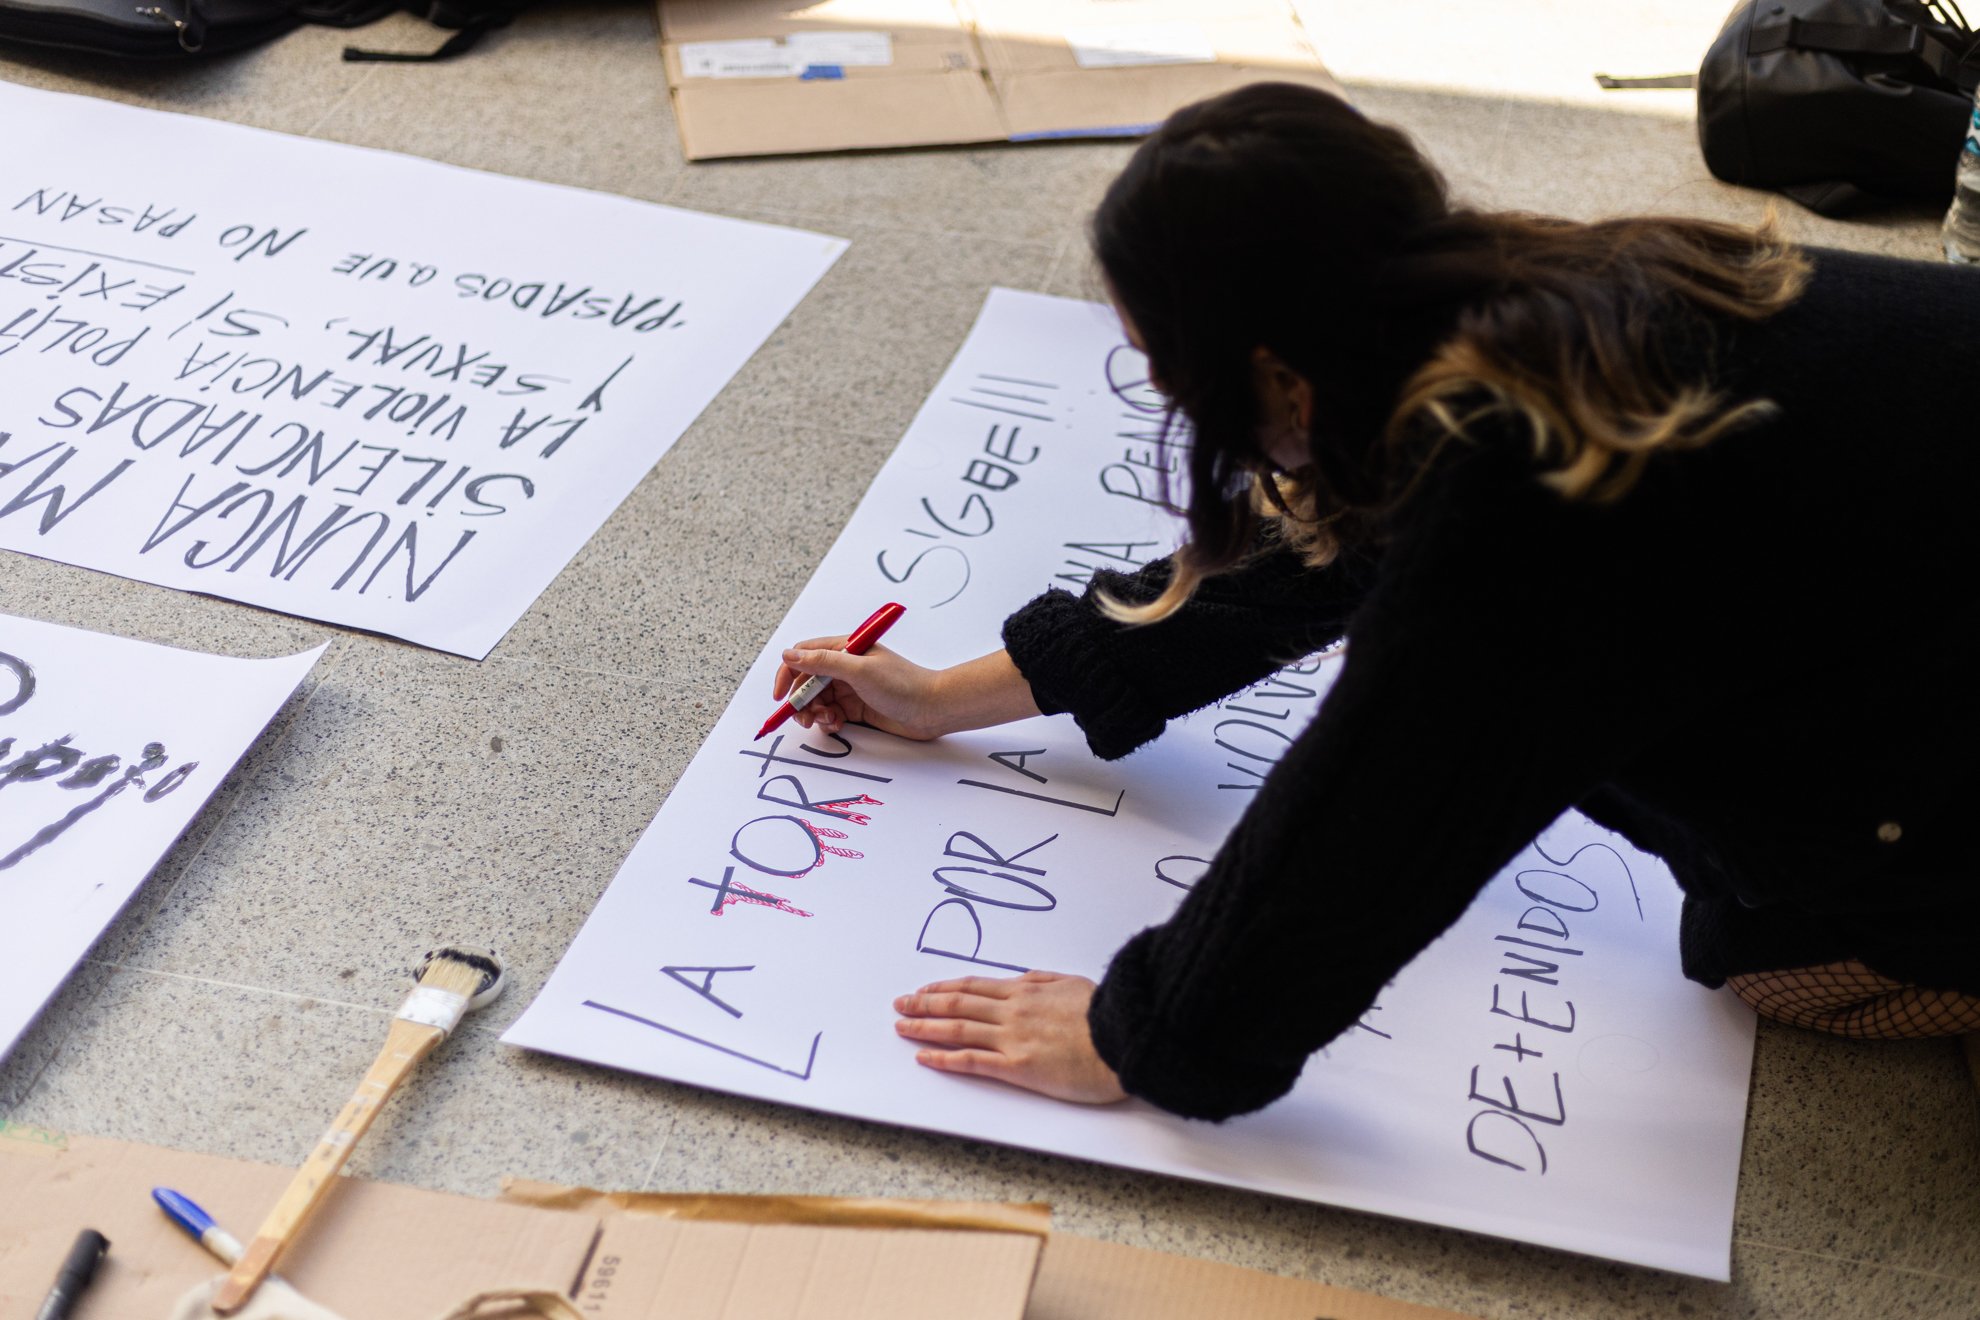 NUNCA MÁ
SILENCIADAS
LA VIOLENCIA POLÍT
Y SEXUAL, SÍ EXIST
"PASADOS QUE NO PASAN
LA TORTU SIGUE!!!
POR LA NA PENO
VOLVE
DETENIDOS
59611